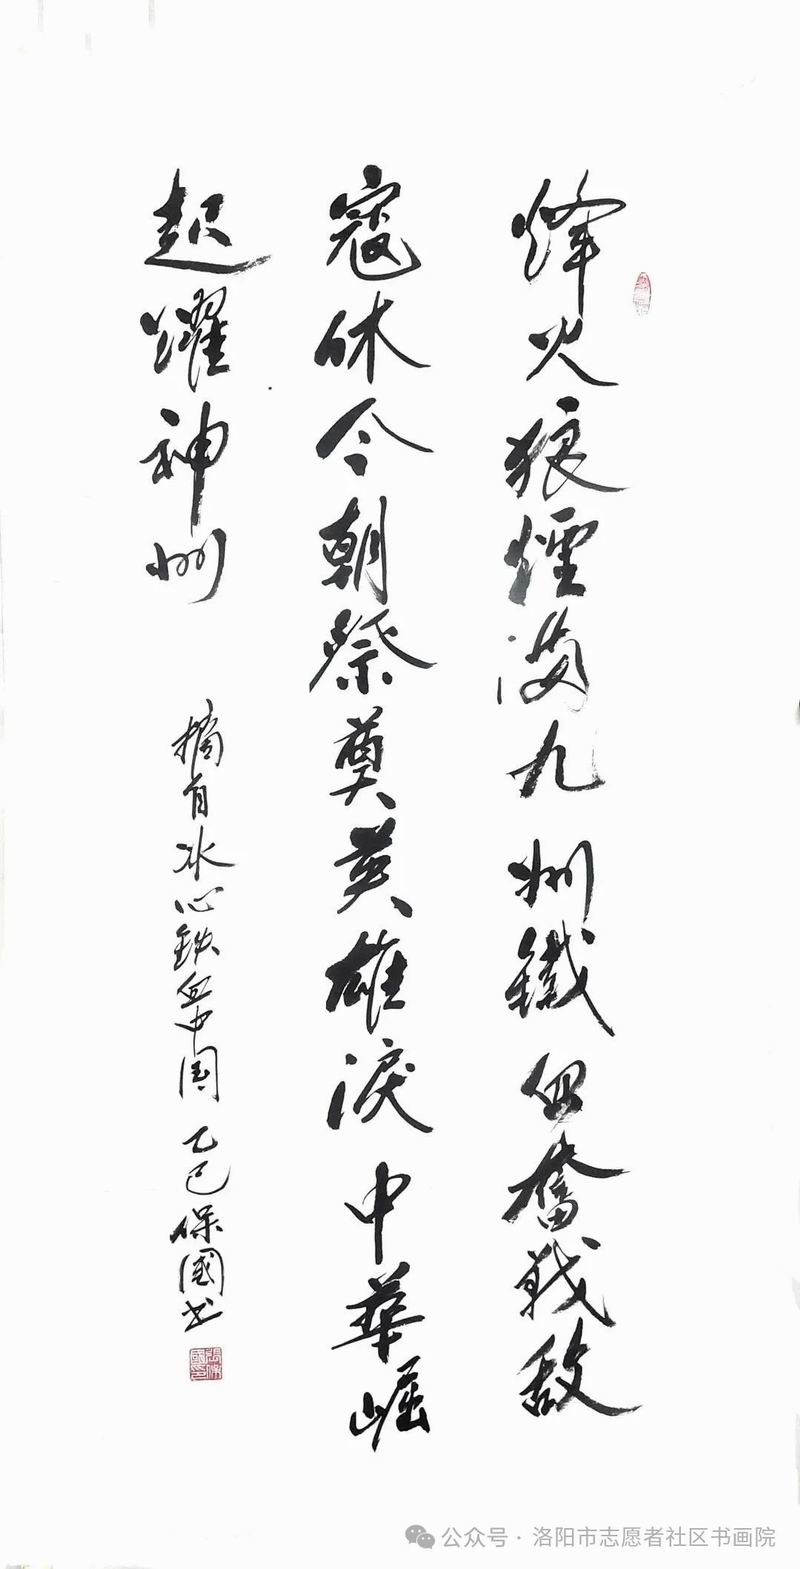 烽火狼煙滿九州鐵血奮戰敵
寇休今朝祭奠英雄淚中華崛
起耀神州
摘自冰心铁血中国 乙巳保國书
公众号 · 洛阳市志愿者社区书画院